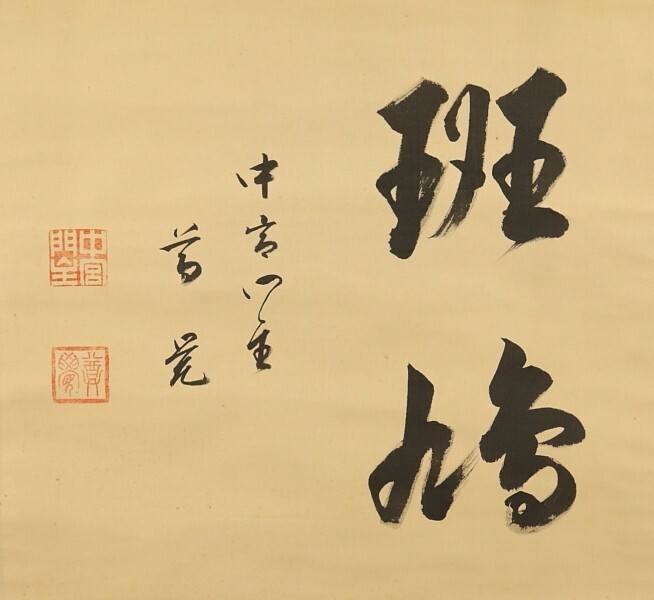 班鳩
中宮門主
尊覚
中宮門主
尊覺